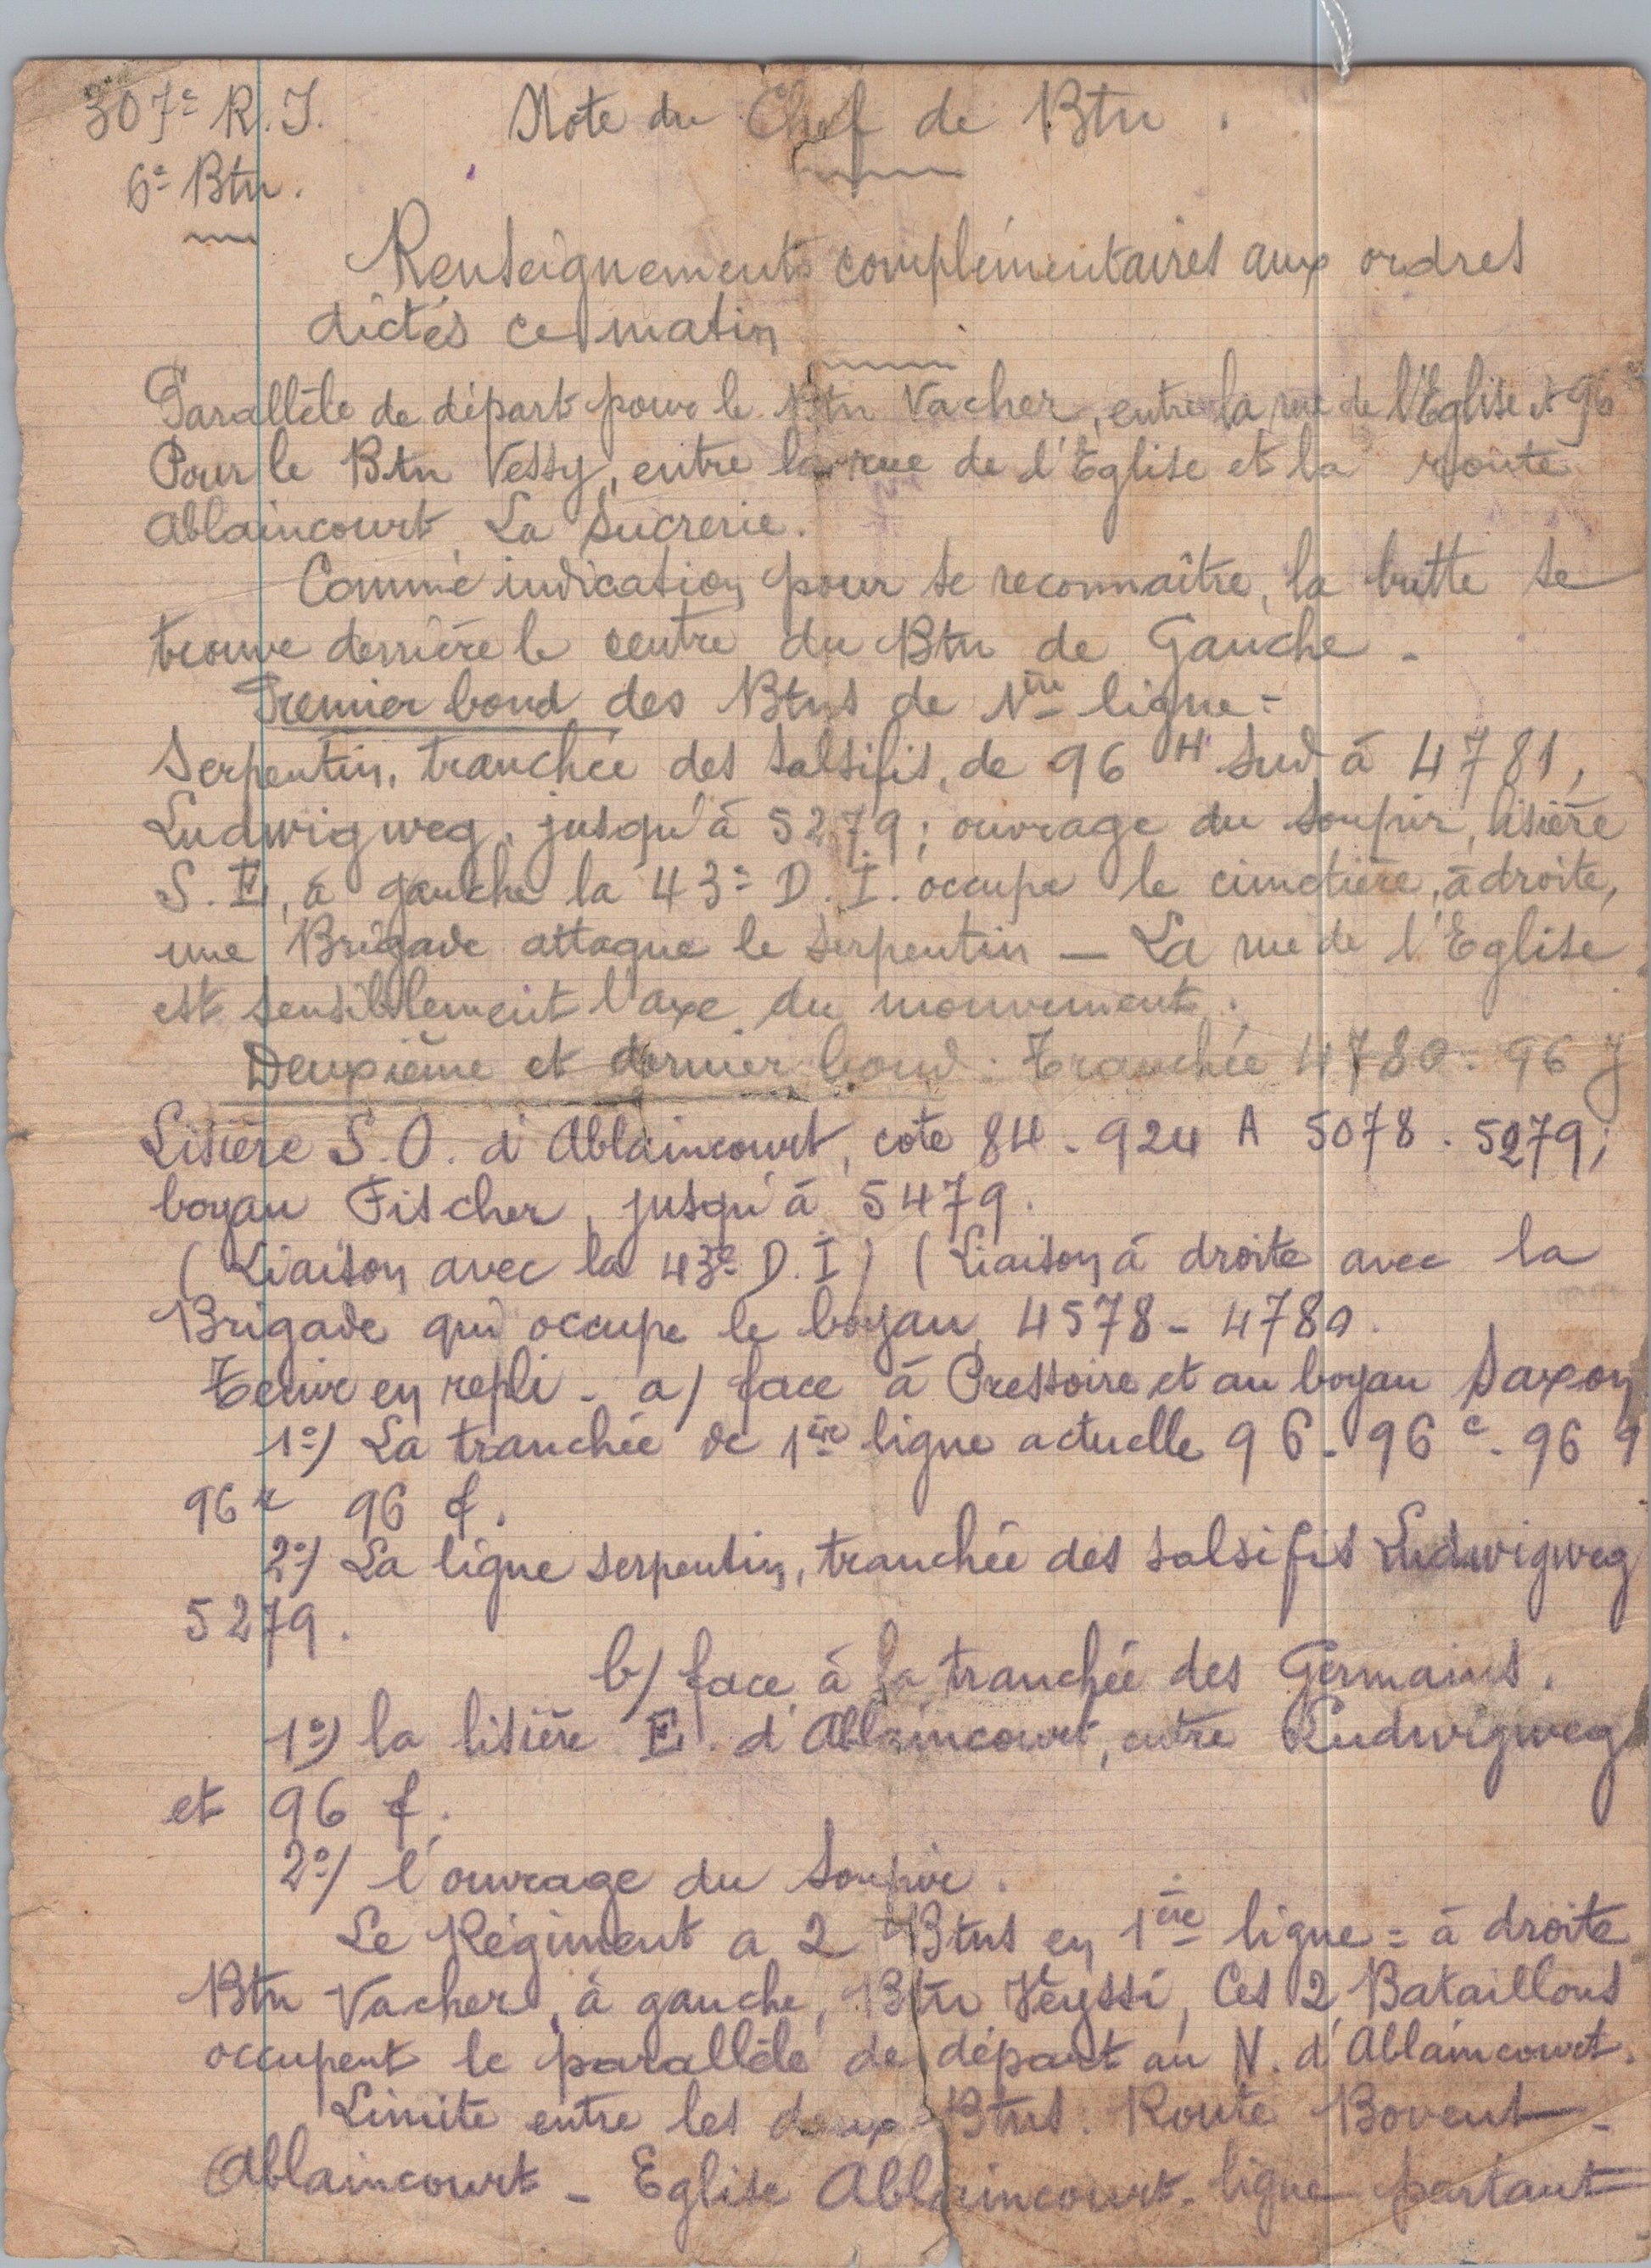 307e R.I. Note du Chef de Btn.
6e Btn.
Renseignements complémentaires aux ordres
dictés ce matin
Parallèle de départ pour le Btn Vacher, entre la rue de l'Eglise et 96
Pour le Btn Vessy, entre la rue de l'Eglise et la route
Ablaincourt La Sucrerie.
Comme indication pour se reconnaître, la butte se
trouve derrière le centre du Btn de Gauche.
Premier bond des Btns de 1ère ligne =
Serpentin, tranchée des Salsifis, de 96 H Sud à 4781,
Ludwigweg, jusqu'à 5279; ouvrage du Soupir, lisière
S. E, à gauche la 43e D.I. occupe le cimetière, à droite,
une Brigade attaque le Serpentin — La rue de l'Eglise
est sensiblement l'axe du mouvement.
Deuxième et dernier bond. Tranchée 4780. 96 J
Lisière S.O. d'Ablaincourt, cote 84 - 924 A 5078. 5279;
boyau Fischer, jusqu'à 5479.
(Liaison avec la 43e D.I) (Liaison à droite avec la
Brigade qui occupe le boyau 4578 - 4780.
Tenir en repli - a) face à Pressoire et au boyau Saxon
1°) La tranchée de 1ère ligne actuelle 96 - 96 c - 96
96 96 f.
2°) La ligne serpentin, tranchée des salsifis Ludwigweg
5279.
b) face à la tranchée des Germains.
1°) la lisière E. d'Ablaincourt, entre Ludwigweg
et 96 f.
2°) l'ouvrage du Soupir.
Le Régiment a 2 Btns en 1ère ligne = à droite
Btn Vacher, à gauche, Btn Veyssi, Ces 2 Bataillons
occupent le parallèle de départ au N. d'Ablaincourt.
Limite entre les deux Btns. Route Bovent -
Ablaincourt - Eglise Ablaincourt - ligne partant